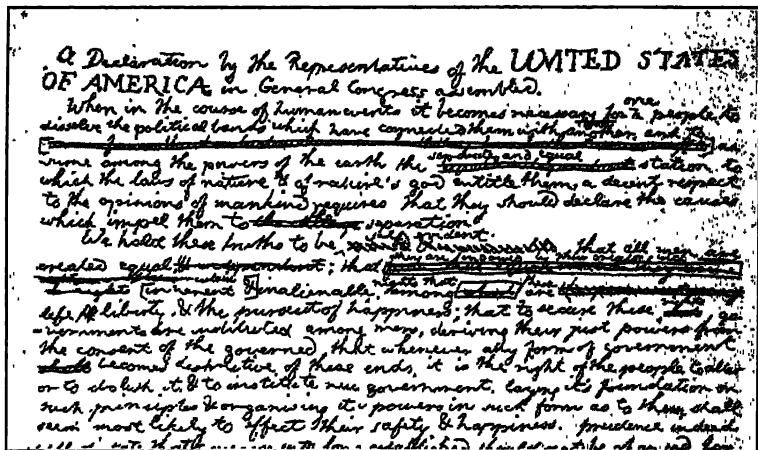 A Declaration by the Representatives of the UNITED STATES
OF AMERICA, in General Congress assembled.
When in the course of human events it becomes necessary for one people to
dissolve the political bands which have connected them with another, and to
as-
separate and equal
sume among the powers of the earth the station to
which the laws of nature & of nature's god entitle them, a decent respect
to the opinions of mankind requires that they should declare the causes
which impel them to the separation.
self-evident
We hold these truths to be that all men are
they are endowed by their creator with
created equal that
rights that these
inherent & inalienable among are
rights
life & liberty, & the pursuit of happiness; that to secure these go-
-vernments are instituted among men, deriving their just powers from
the consent of the governed, that whenever any form of government
shall becomes destructive of these ends, it is the right of the people to alter
or to abolish it, & to institute new government, laying it's foundation on
such principles & organising it's powers in such form as to them shall
seem most likely to effect their safety & happiness. prudence indeed